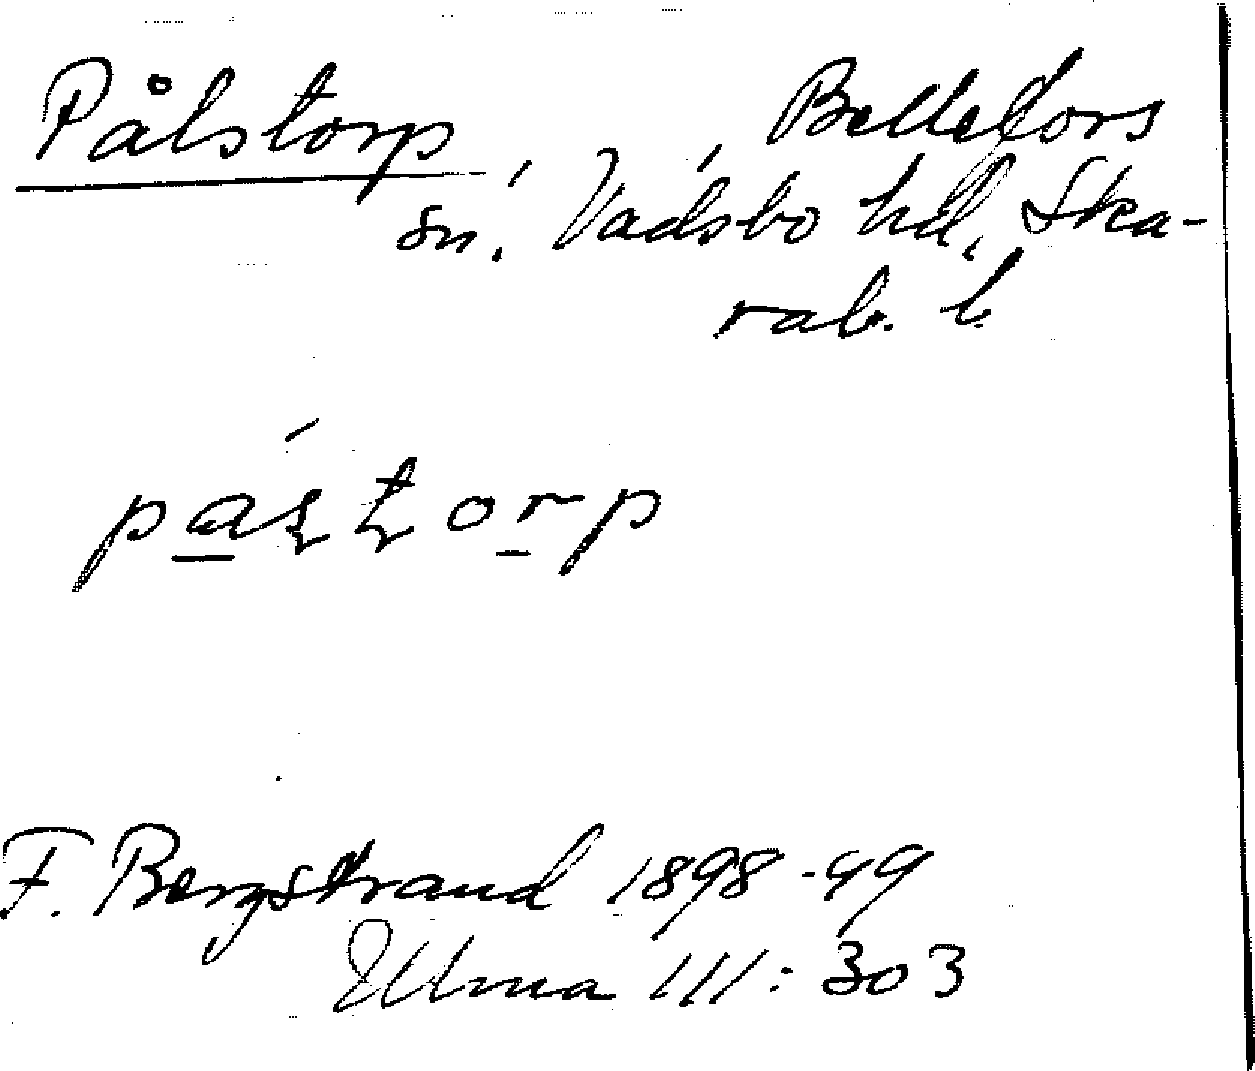 Pålstorp, , Bellefors
sn. Vadsbo hd, Ska-
rab. l.
pa̲ʂʈor̲p
F. Bergstrand 1898-99
Ulma 111:303